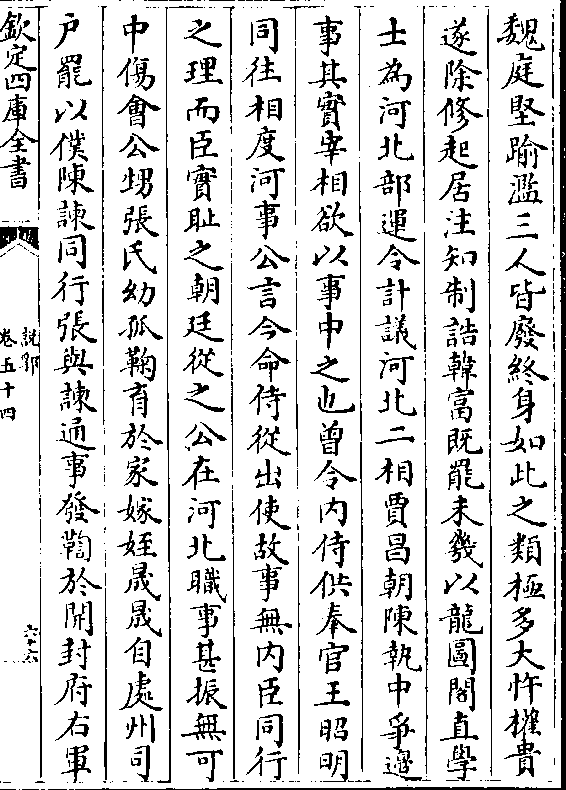 魏庭堅踰濫三人皆廢終身如此之類極多大忤權貴
遂除修起居注知制誥韓富既罷未幾以龍圖閣直學
士為河北部運令計議河北二相賈昌朝陳執中爭邊
事其實宰相欲以事中之也曾令內侍供奉官王昭明
同往相度河事公言今命侍從出使故事無內臣同行
之理而臣實恥之朝廷從之公在河北職事甚振無可
中傷會公甥張氏幼孤鞠育於家嫁姪晟晟自處州司
戶罷以僕陳諫同行張與諫通事發鞫於開封府右軍
欽定四庫全書
說郛
卷五十四
六六